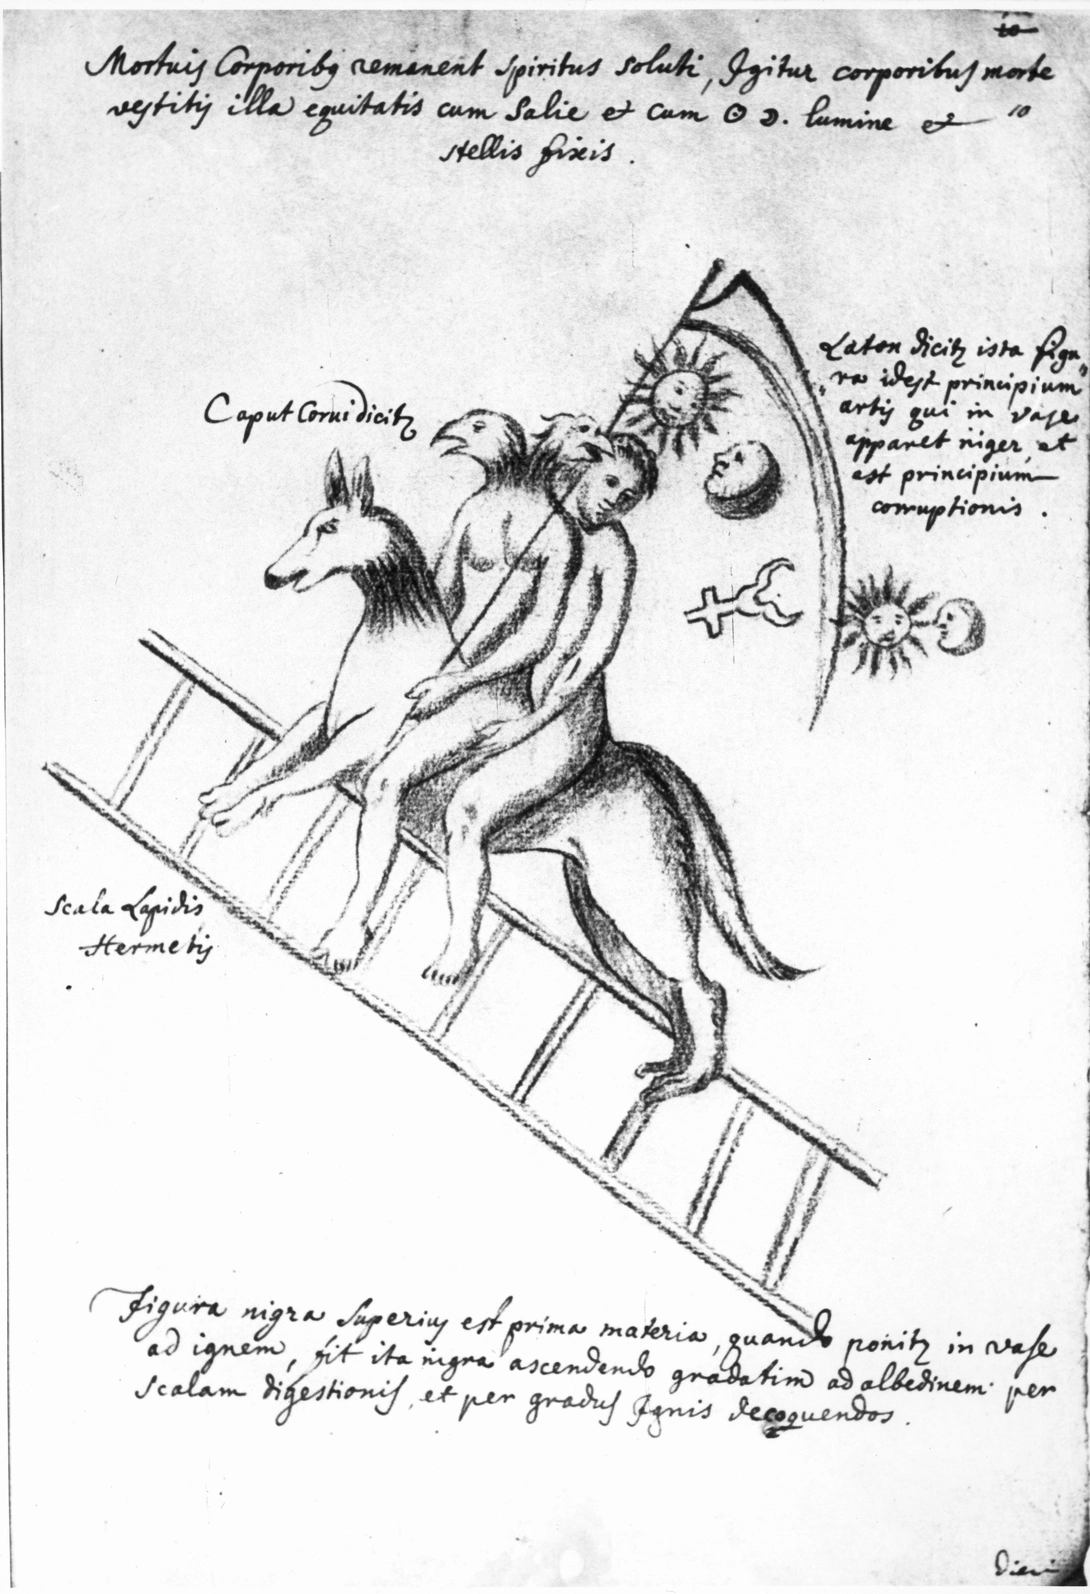 10
Mortuis Corporibꝫ remanent spiritus soluti, Igitur corporibus morte
vestitis illa equitatis cum Salie et cum ☉ ☽. lumine et 10
stellis fixis.
Laton dicitꝫ ista figu„
„ra idest principium
artis qui in vase
apparet niger, et
est principium
corruptionis.
Caput Corui dicitꝫ
Scala Lapidis
Hermetis
Figura nigra superius est prima materia, quando ponitꝫ in vase
ad ignem, fit ita nigra ascendendo gradatim ad albedinem per
scalam digestionis, et per gradus Ignis decoquendos.